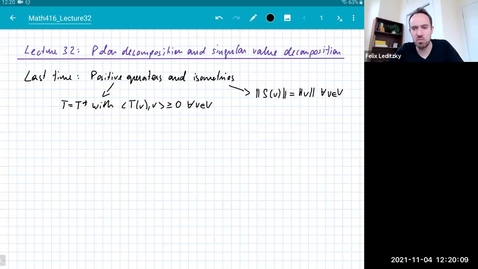 12:20
5.63%
Math416_Lecture32
1
Lecture 32: Polar decomposition and singular value decomposition
Last time: Positive operators and isometries
T=T* with <T(v),v> ≥ 0 ∀v∈V
‖S(v)‖ = ‖v‖ ∀v∈V
Felix Leditzky
2021-11-04 12:20:09